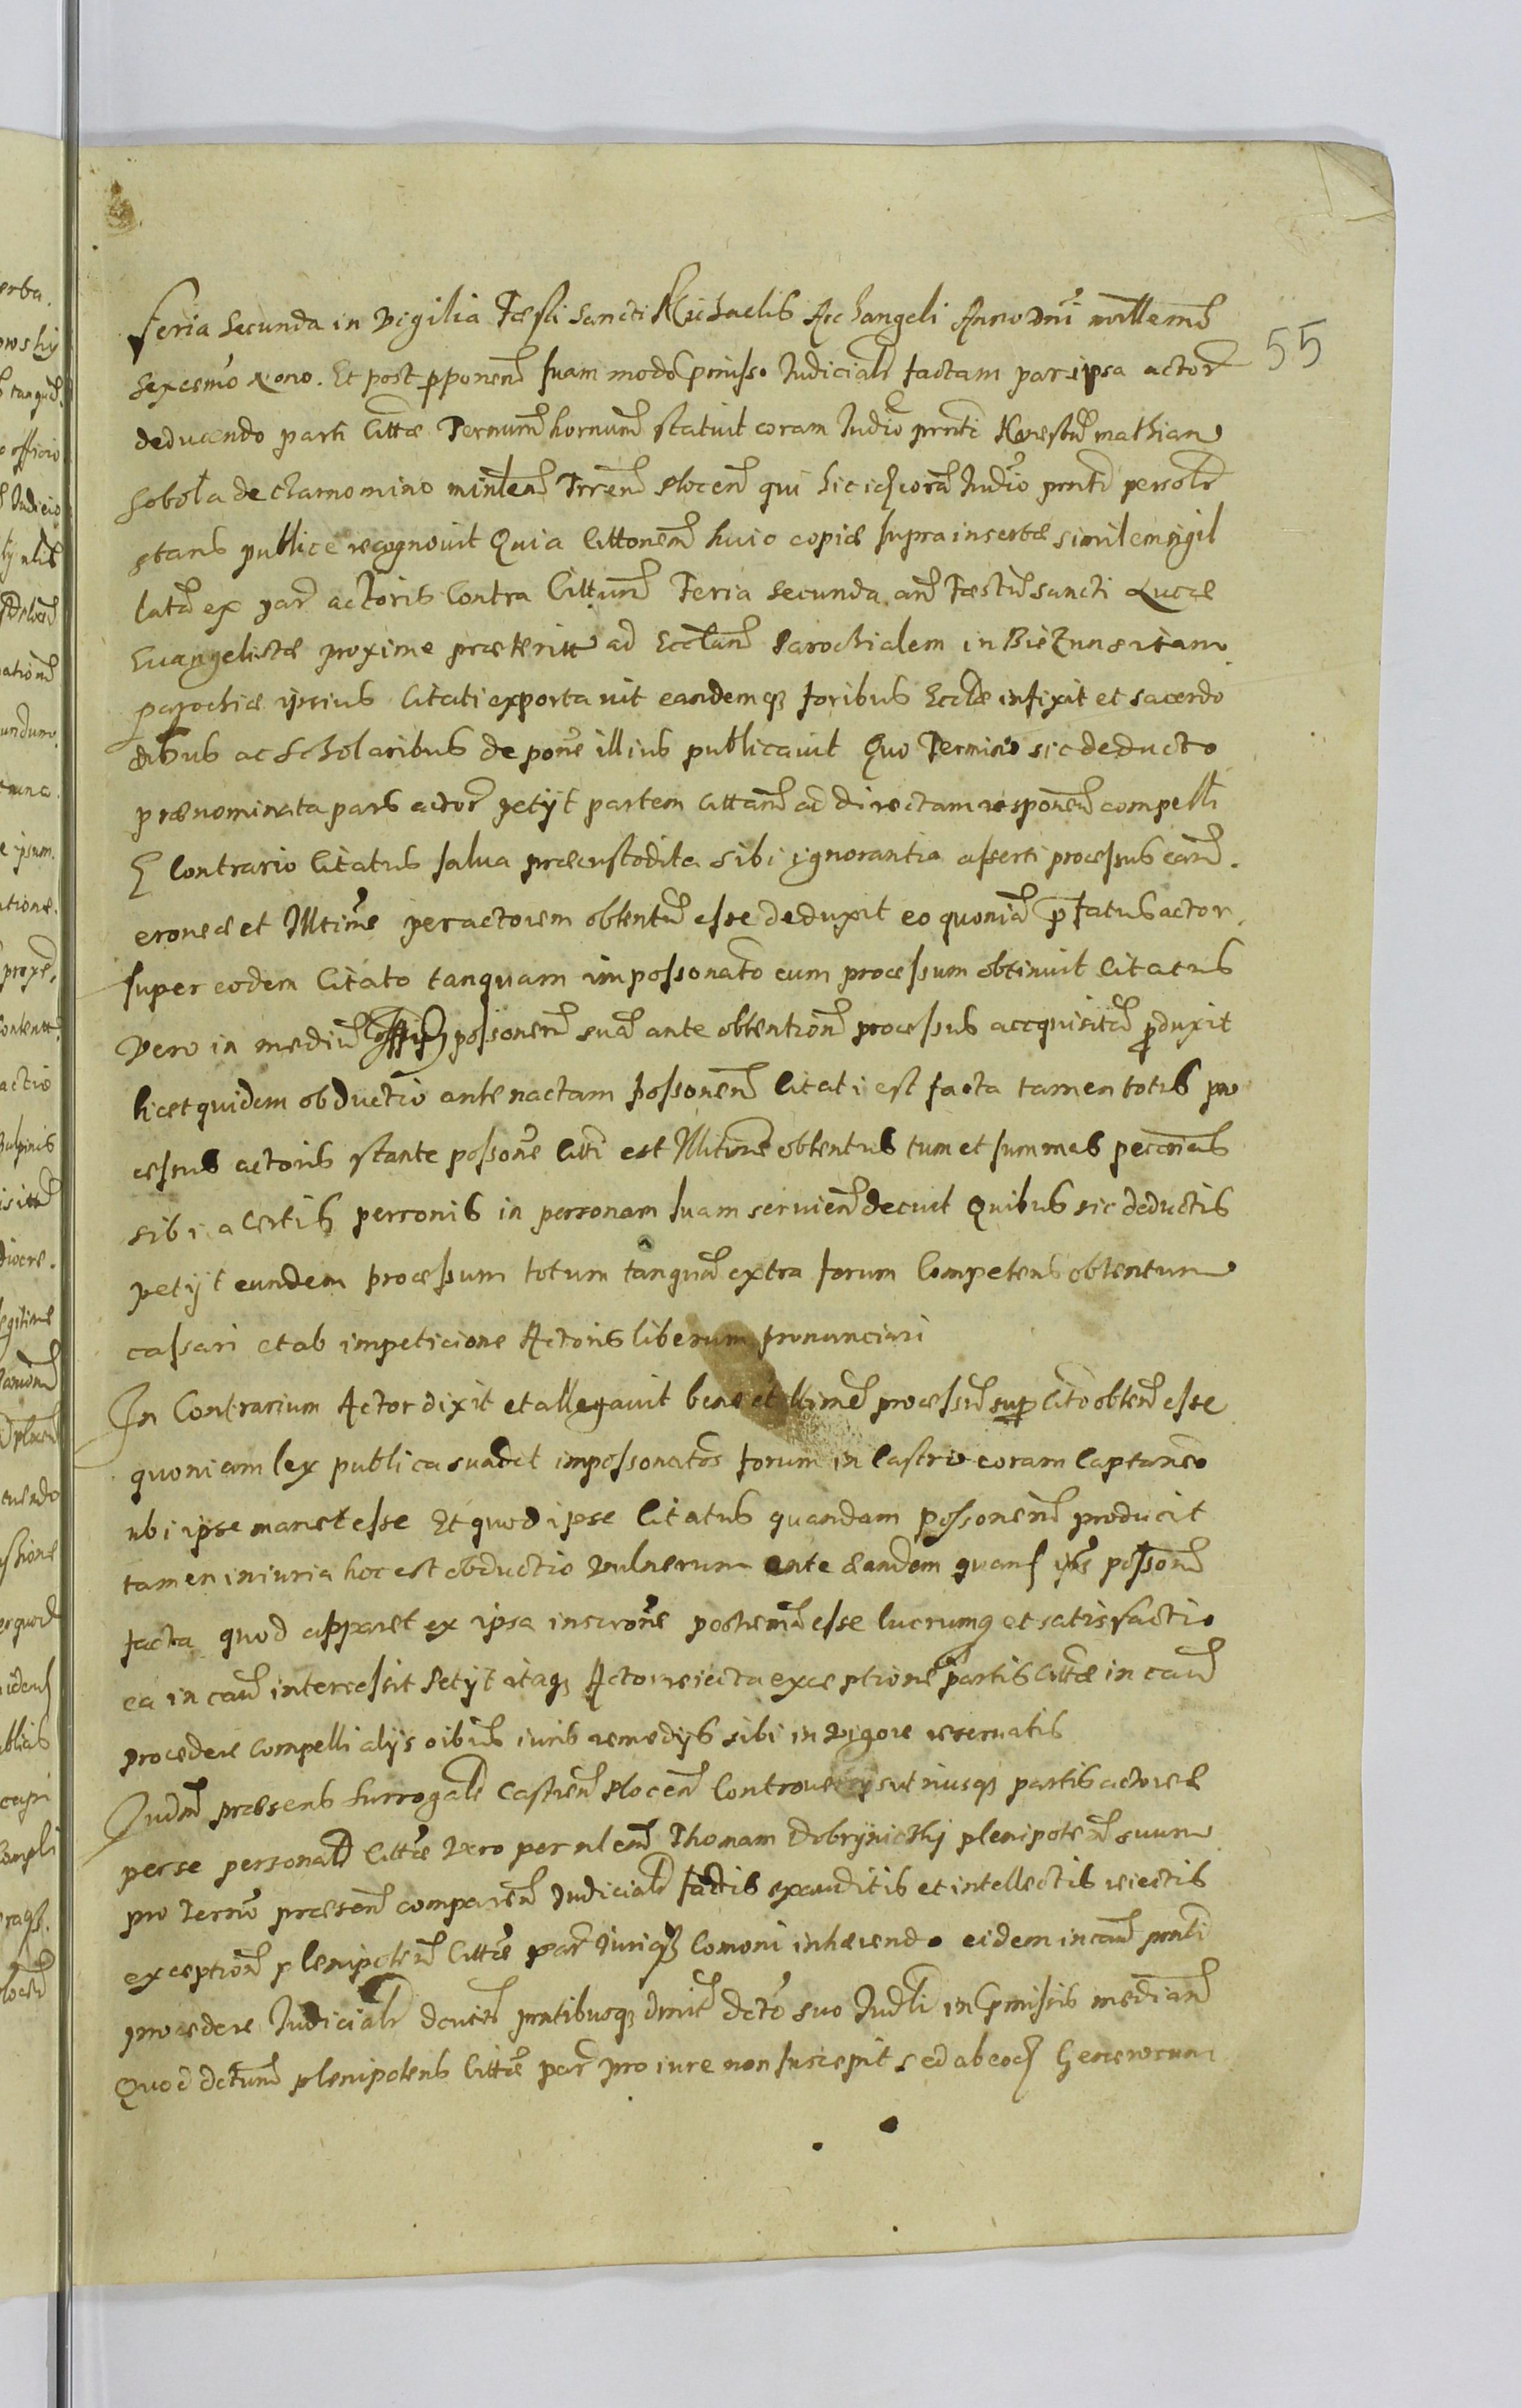 55
Feria Secunda in Vigilia Fæsti Sancti Michaelis Archangeli Anno Dni millemo
Sexcemo Nono. Et post pponem suam modo pmisso Judiciali factam pars ipsa actor
deducendo parti Cittæ Termum hornum statuit coram Judio prnti Honestu mathiam
Sobota de Charnomino minlem Trrem Plocen qui hic id corã Judio prnti personlr
stans publice recognovit Quia Cittonem huic copiæ supra insertæ similem sigil
latã ex par actoris Contra Cittum Feria Secunda an Fæstu Sancti Lucæ
Evangelistæ proxime præteritt ad Ecclam Parochialem in Biezuns
parochiæ ipsius Citati exportavit eandemq foribus Ecclæ infixit et sacerdo
tibus ac scholaribus de pone illius publicavit Quo Termino sic deducto
prænominata pars actor petyt partem Cittam ad directam responem compelli
E Contrario Citatus salva præcustodita sibi ignorantia asserti processus eam
erone et Illtime per actorem obtentu esse deduxit eo quoniã pfatus actor
super eodem Citato tanquam impossonato eum processum obtinuit Citatus
vero in mediu possonem suã ante obtentionẽ processus accquisitã pduxit
licet quidem obductio ante nactam possonem Citati est facta tamen totus pro
cessus actoris stante possone Citti est Illitime obtentus tum et summas pecunias
sibi a Certis personis in personam suam servien docuit Quibus sic deductis
petyt eundem processum totum tanquã extra forum Competens obtentum
cassari et ab impeticione Actoris liberum pronunciari
In Contrarium Actor dixit et allegavit bene et llime processu sup Cito obten esse
quoniam lex publica suadet impossonatos forum in Castro coram Captaneo
ubi ipse manet esse Et quod ipse Citatus quandam possonem producit
tamen iniuria hoc est obductio vulnerum ante eandem possonẽ
facta quod apparet ex ipsa inscrone esse lucrumq et satisfactio
ea in cau intercessit Petyt itaq Actor reiecta exceptione partis Cittæ in cau
procedere Compelli alijs oibus iuris remedijs sibi in vigore reservatis
Judm præsens Surrogale Castren Plocen Controversijs utriusq partis actoreæ
per se personalr Cittæ vero per nlem Thomam Dobrynichj plenipotem suum
pro Termo præsen comparen Judicialr factis exauditis et intellectis reiectis
exceptione plenipoten Cittæ par Juriq Comoni inhærendo eidem in cau prnti
procedere Judicialr decret prntibusq dmit deto suo Judli in pmissis median
Quod detum plenipotens Cittæ par pro iure non suscepit sed ab eod Generosum